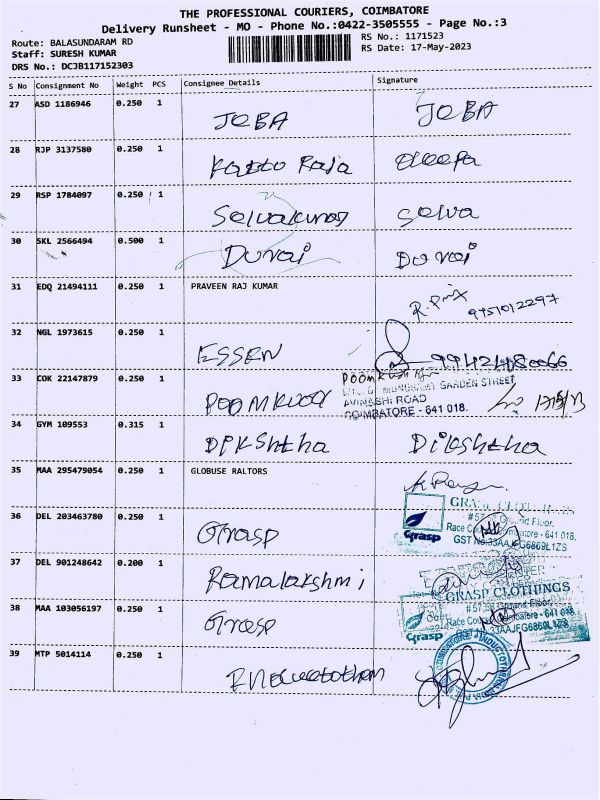 THE PROFESSIONAL COURIERS, COIMBATORE
Delivery Runsheet - MO - Phone No.:0422-3505555 - Page No.:3
Route: BALASUNDARAM RD
RS No.: 1171523
Staff: SURESH KUMAR
RS Date: 17-May-2023
DRS No.: DCJB117152303
S No Consignment No Weight PCS Consignee Details Signature
27 ASD 1186946 0.250 1 JOBA JOBA
28 RJP 3137580 0.250 1 Raja deepa
29 RSP 1784097 0.250 1 Selvakumar Selva
30 SKL 2566494 0.500 1 Durai Durai
31 EDQ 21494111 0.250 1 PRAVEEN RAJ KUMAR
9751012297
32 NGL 1973615 0.250 1 ESSEN
33 COK 22147879 0.250 1
GARDEN STREET
AVINASHI ROAD
COIMBATORE - 641 018.
34 GYM 109553 0.315 1 DIKShtha Dikshtha
35 MAA 295479054 0.250 1 GLOBUSE RALTORS
36 DEL 203463780 0.250 1 Grasp
Grasp
Ground Floor,
641 018.
GST No.33AAJFG6869L1ZS
37 DEL 901248642 0.200 1 Ramalakshmi
38 MAA 103056197 0.250 1 Grasp
GRASP CLOTHINGS
Grasp
Ground Floor,
641 018
33AAJFG6869L1ZS
39 MTP 5014114 0.250 1